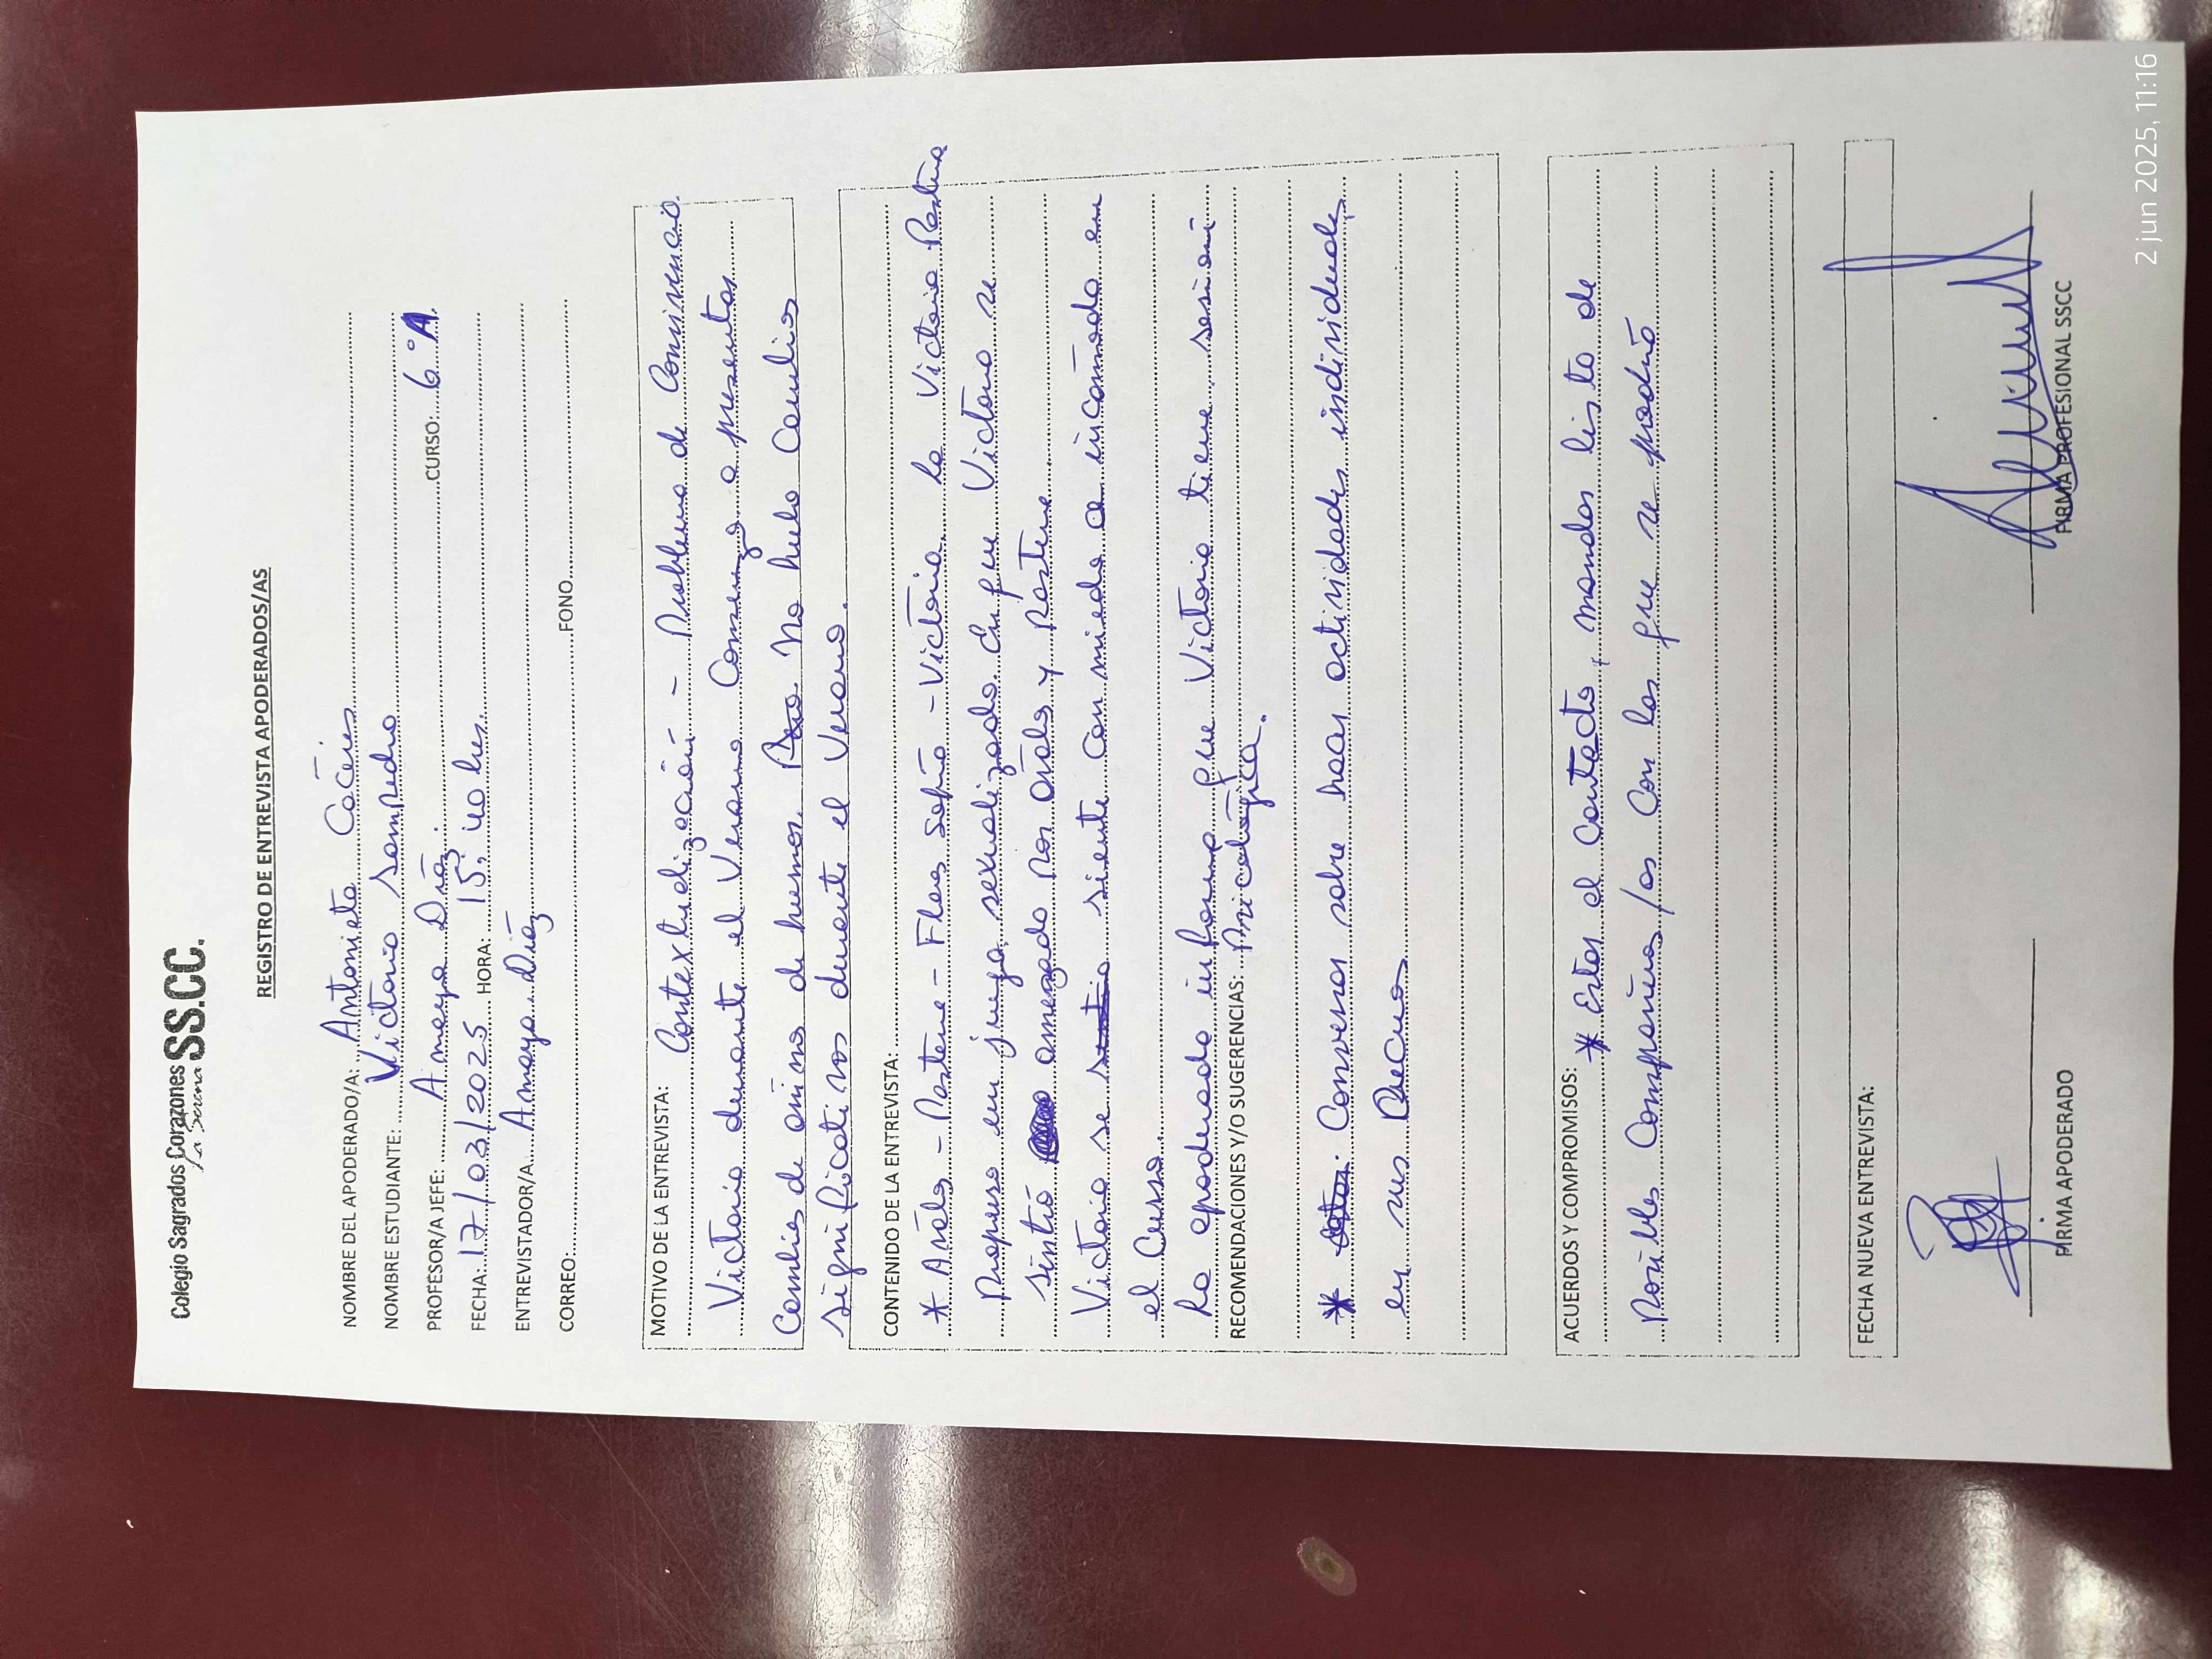 Colegio Sagrados Corazones SS.CC.
La Serena
REGISTRO DE ENTREVISTA APODERADOS/AS
NOMBRE DEL APODERADO/A: Antonieta Cáceres
NOMBRE ESTUDIANTE: Victoria Sampedro
PROFESOR/A JEFE: Amaya Díaz. CURSO: 6°A
FECHA: 17/03/2025 HORA: 15:40 hrs.
ENTREVISTADOR/A Amaya Díaz
CORREO: FONO
MOTIVO DE LA ENTREVISTA: Contextualización - Problema de Convivencia.
Victoria durante el Verano Comenzo a presentar
Cambios de animo de humor. No hubo Cambios
significativos durante el Verano.
CONTENIDO DE LA ENTREVISTA:
* - - Flores - Victoria. la Victoria
Propuso un juego sexualizado. En que Victoria se
sintió amenazada por y
Victoria se siente con miedo e incomoda en
el Curso.
La apoderada informa que Victoria tiene sesión
RECOMENDACIONES Y/O SUGERENCIAS: Psicológica.
* Conversar sobre hacer actividades individuales
en sus Recreos
ACUERDOS Y COMPROMISOS:
* Estar el Contacto, mandar lista de
Posibles Compañeras/os Con los que se podría
FECHA NUEVA ENTREVISTA:
FIRMA APODERADO
FIRMA PROFESIONAL SSCC
2 jun 2025, 11:16